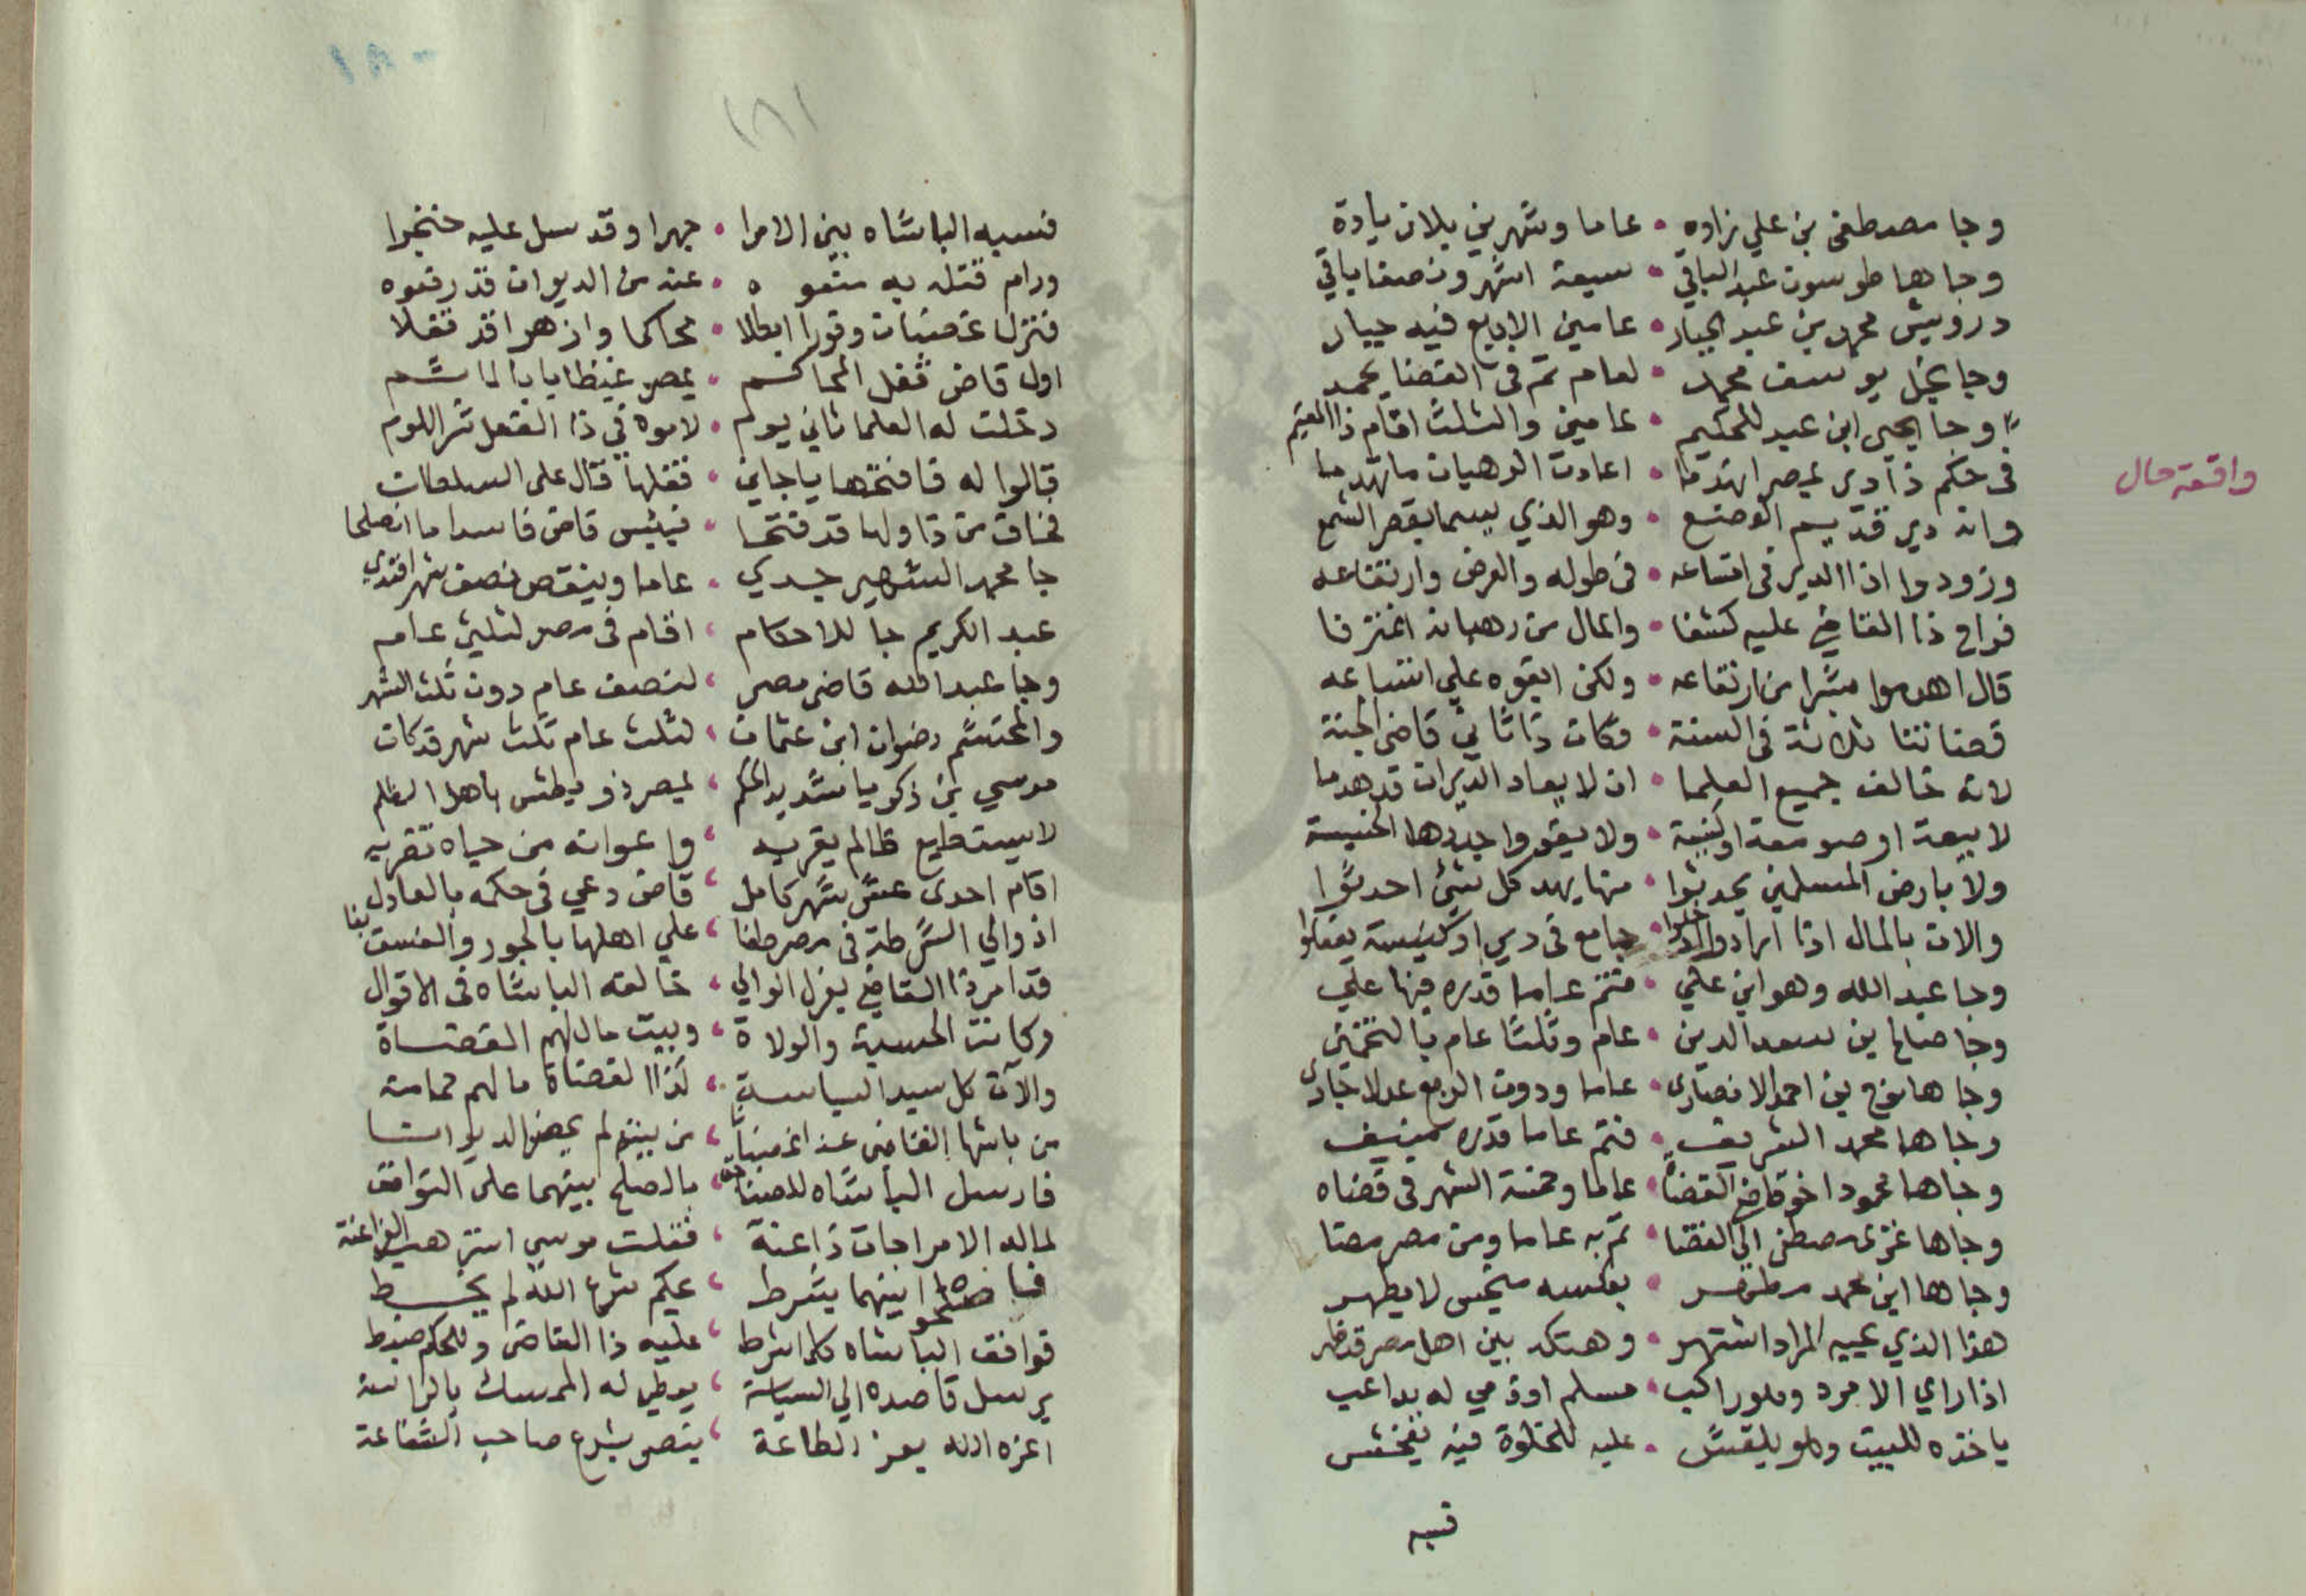 وجا مصطفى بن علي زاده • عاما وشهرين بلا زيادة
وجاها طوسون عبد الباقي • سبعة اشهر ونصفا باقي
درويش محمد بن عبد الجبار • عامين الا ربع فيه جبار
وجا نجل يوسف محمد • لعام تم في القضا يحمد
وجا يحيى ابن عبد الحكيم • عامين والثلث اقام ذا المقيم
واقعة حال
في حكم ذا دير بمصر انهدما • اعادت الرهبان ما تهدما
وانه دير قديم الوضع • وهو الذي يسما بقصر الشمع
وزودوا اذا الدير في اتساعه • في طوله والعرض وارتفاعه
فراح ذا القاضي عليه كشفا • والمال من رهبانه اغترفا
قال اهدموا شبرا من ارتفاعه • ولكن ابقوه على اتساعه
قضاتنا ثلاثة في السنة • فكان ذا ثاني قاضي الجنة
لانه خالف جميع العلما • ان لا يعاد الديران قد هدما
لا بيعة او صومعة او كنيسة • ولا يقوا جددها الخسيسة
ولا بارض المسلمين يحدثوا • منها يهد كل شيء احدثوا
والان بالمال اذا ارادوا • جامع في دير او كنيسة يفعلوا
وجا عبد الله وهو ابن علي • فتم عاما قدره فيها علي
وجا صالح بن سعد الدين • عام وثلثا عام بالتخمين
وجاها نوح بن احمد الانصاري • عاما ودون الربع عدلا جاري
وجاها محمد الشريف • فتم عاما قدره منيف
وجاها محمود اخو قاضي القضاه • عاما وخمسة اشهر في قضاه
وجاها عزمى مصطفى الى القضا • تم به عاما ومن مصر مضا
وجاها ابن محمد مطهر • بعكسه منجس لا يطهر
هذا الذي بحبه المراد اشتهر • وهتكه بين اهل مصر قد ظهر
اذا راي الامرد ولو راكب • مسلم او ذمي له يداعب
ياخذه للبيت ولو بلقش • عليه للخلوة فيه يفحش
فسبه
١٨٠
١٨١
فسبه الباشاه بين الامرا • جهرا وقد سل عليه خنجرا
ورام قتله به منعوه • عنه من الديوان قد رفعوه
فنزل غضبان وقورا ابطلا • محاكما واذ هو اقد قفلا
اول قاض قفل المحاكم • بمصر غيظا يا بالماشم
دخلت له العلما ثاني يوم • لاموه في ذا الفعل شر اللوم
قالوا له فافتحها يا جاني • فقلها قال على السلطان
فخاف من ذا ولها قد فتحا • فبئس قاض فاسدا ما انصلحا
جا محمد الشهير جدي • عاما وينقص نصف شهر افندي
عبد الكريم جا للاحكام • اقام في مصر لثلثي عام
وجا عبد الله قاضي مصر • لنصف عام دون ثلث الشهر
والمحتشم رضوان ابن عثمان • لثلث عام ثلث شهر قد كان
موسى بن زكريا شديد الحكم • بمصر ذو بطش باهل الظلم
لا يستطيع ظالم يقربه • واعوانه من حياه تقربه
اقام احدى عشر شهر كامل • قاض دعي في حكمه بالعادل
اذ والي الشرطة في مصر طغا • على اهلها بالجور والفسق بغا
قد امر ذا القاضي بعزل الوالي • خالفه الباشاه في الاقوال
وكانت الحسبة والولاة • وبيت مال لهم القضاة
والآن كل سيد السياسة • كذا القضاة ما لهم حماسة
من باشها القاضي غدا غضبانا • من بيته لم يحضر الديوانا
فارسل الباشاه للصناجق • بالصلح بينهما على التوافق
لما له الامرا جات ذاعنة • فقلت موسى استرهب الفراعنة
فاصلحوا بينهما بشرط • عليكم شرع الله لم يحط
فوافق الباشاه كلما شرط • عليه ذا القاضي وللحكم ضبط
يرسل قاصده الى السياسة • يوطي له الممسك بالراسه
اعزه الله بعز الطاعة • ينصر بشرع صاحب الشفاعة